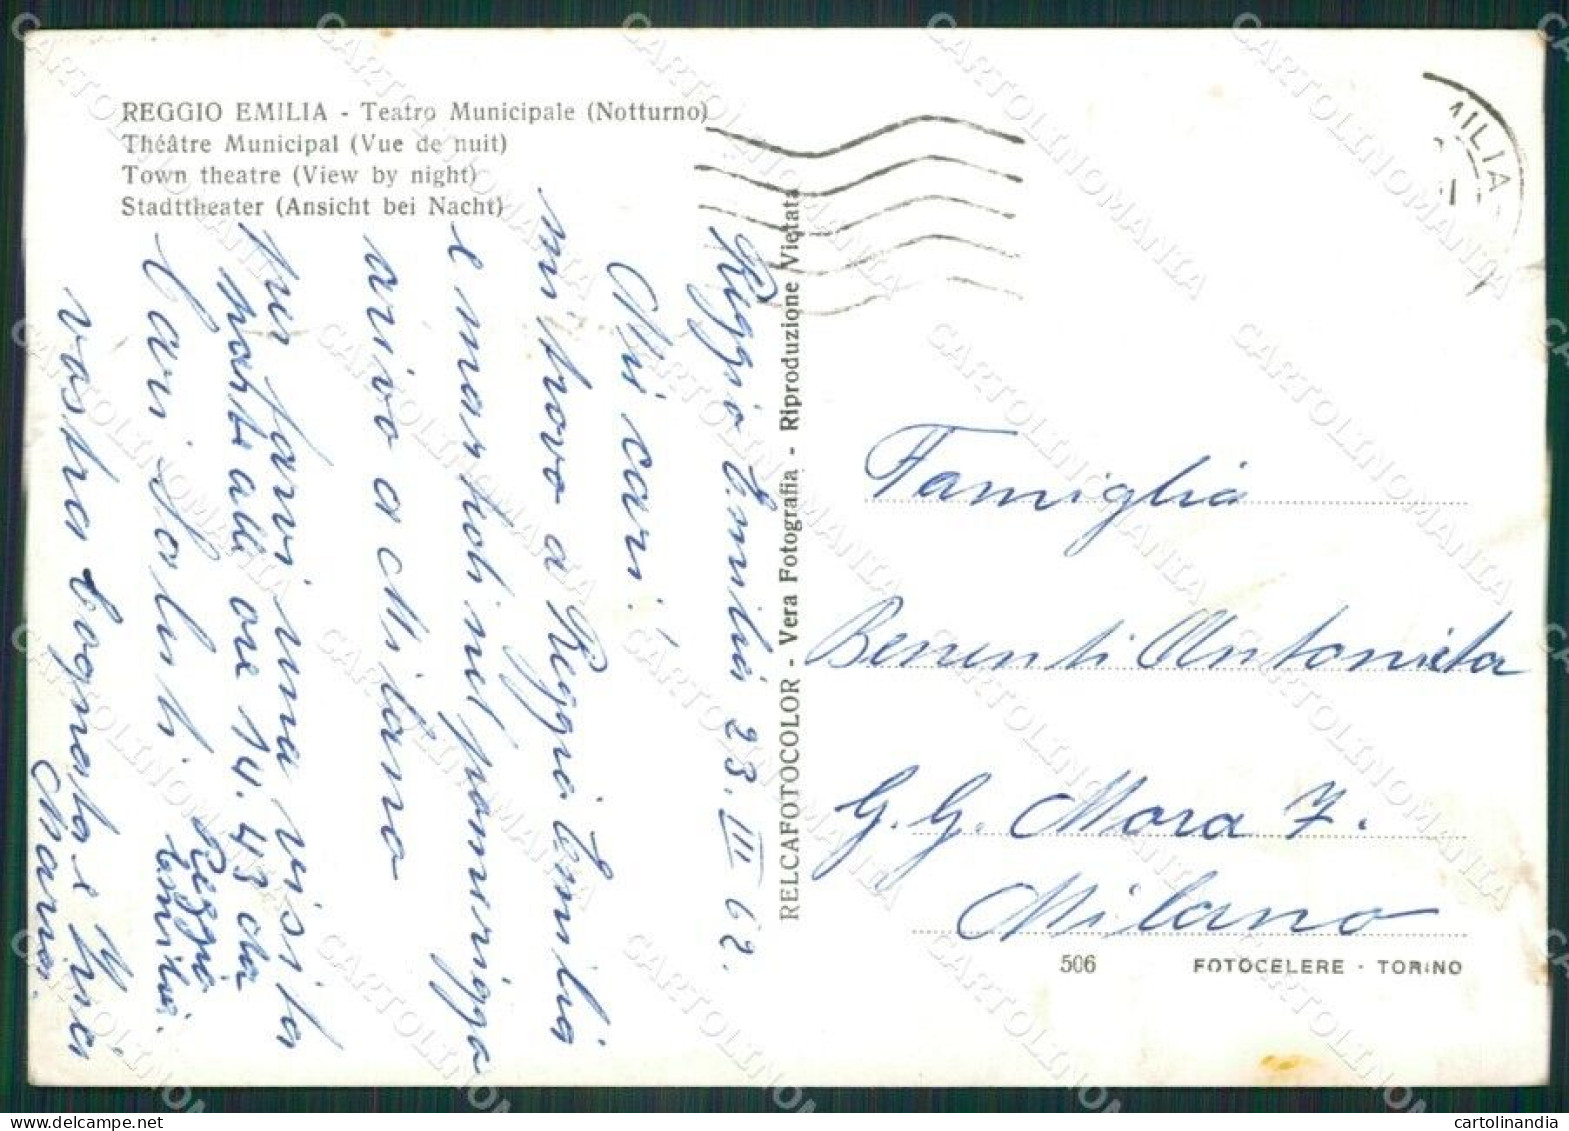 REGGIO EMILIA - Teatro Municipale (Notturno)
Théâtre Municipal (Vue de nuit)
Town theatre (View by night)
Stadttheater (Ansicht bei Nacht)
Reggio Emilia 23.III 62.
Miei cari!
mi trovo a Reggio Emilia
e martedi nel pomeriggo
arivo a Milano
per farvi una visita
parto alle ore 14.43 da
Reggio
Emilia.
Cari Saluti
vostra Cognata e Zia
Maria.
RELCAFOTOCOLOR - Vera Fotografia - Riproduzione Vietata
MILIA
Famiglia
Benenti Antonieta
G. G. Mora 7.
Milano
506 FOTOCELERE - TORINO
CARTOLINOMANIA
cartolinandia